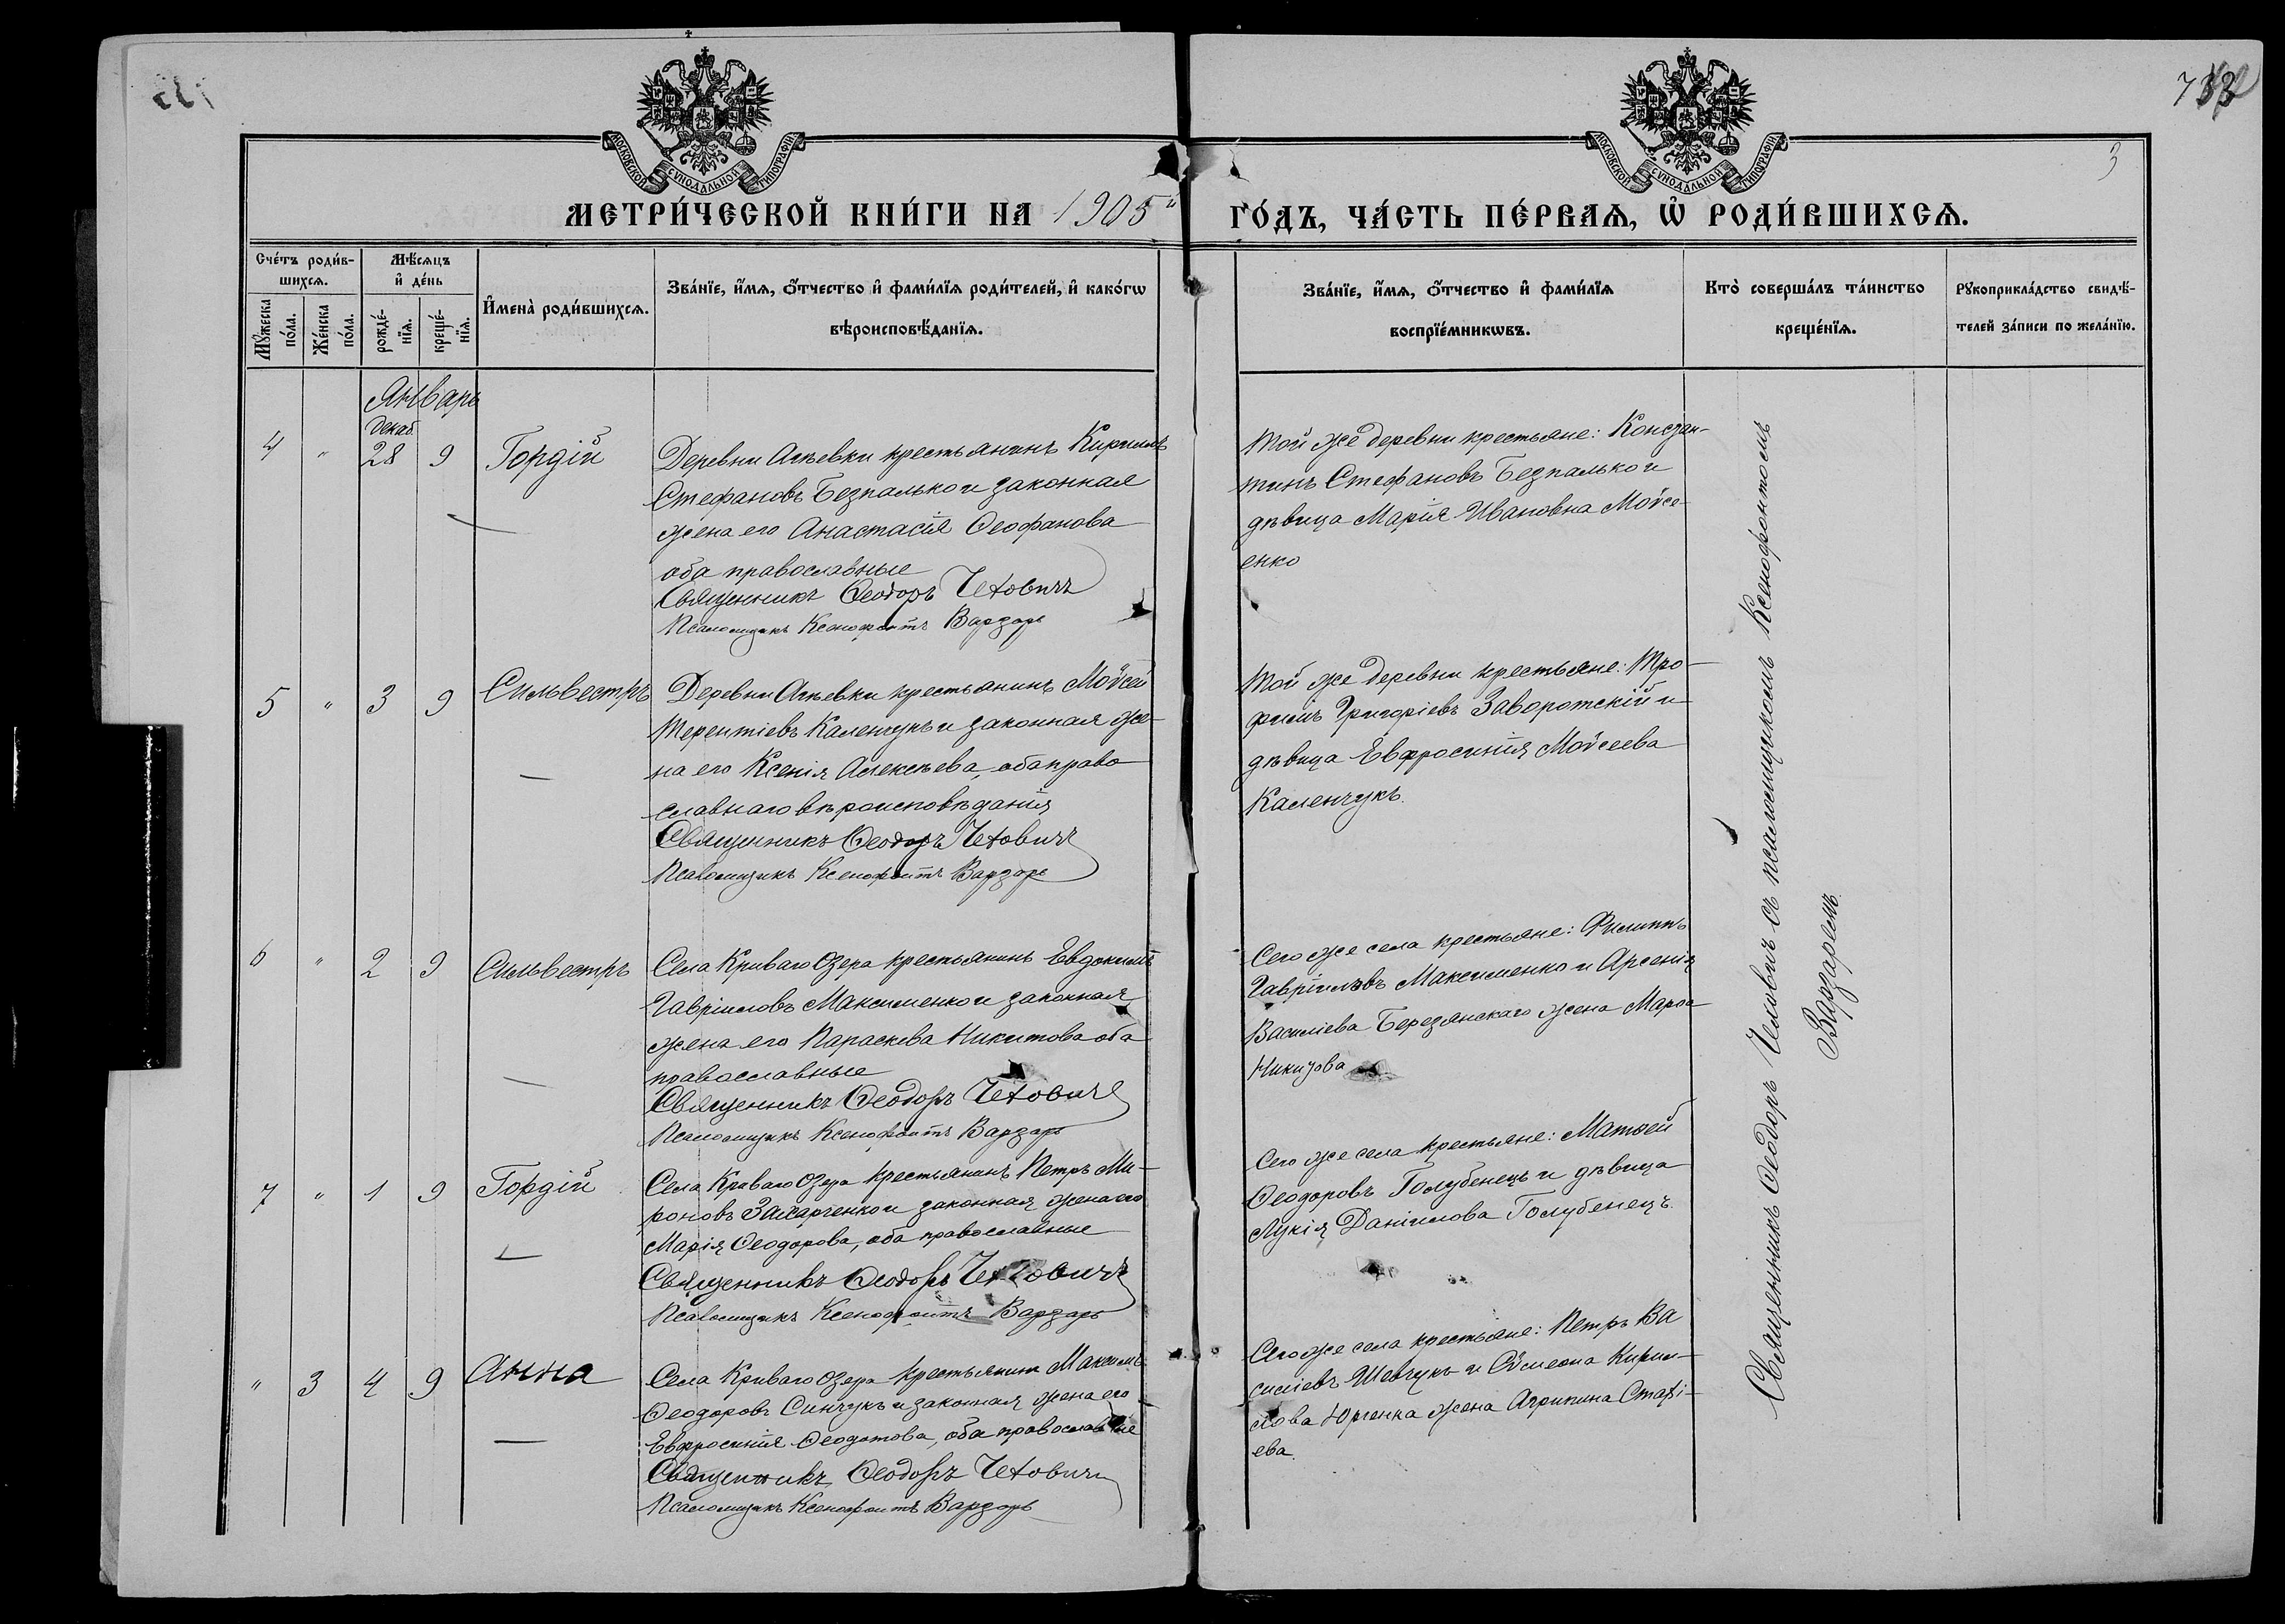 733
3
МОСКОВСКОЙ СѴНОДАЛЬНОЙ ТИПОГРАФІИ
МОСКОВСКОЙ СѴНОДАЛЬНОЙ ТИПОГРАФІИ
МЕТРИ́ЧЕСКОЙ КНИ́ГИ НА 1905"
ГО́ДЪ, ЧА́СТЬ ПЕ́РВАѦ, Ѽ РОДИ́ВШИХСѦ.
Сче́тъ роди́в-
шихсѧ.
Мꙋ́жеска
по́ла.
Же́нска
по́ла.
Мѣ́сѧцъ
и҆ де́нь
рожде́-
нїѧ.
креще́-
нїѧ.
И҆мена̀ роди́вшихсѧ.
Зва́нїе, и҆́мѧ, ѻ҆́тчество и҆ фами́лїѧ роди́телей, и҆ како́гѡ
вѣроисповѣ́данїѧ.
Зва́нїе, и҆́мѧ, ѻ҆́тчество и҆ фами́лїѧ
воспрїе́мникѡвъ.
Кто̀ соверша́лъ та́инство
креще́нїѧ.
Рꙋкоприкла́дство свидѣ́-
телей за́писи по жела́нїю.
Январь
Декаб.
4 " 28 9 Гордій
Деревни Агѣевки крестьянинъ Кириллъ
Стефановъ Безпалько и законная
жена его Анастасія Ѳеофанова
оба православные
Священникъ Ѳеодоръ Чеховичъ
Псаломщикъ Ксенофонтъ Варзарь
Той же деревни крестьяне: Констан-
тинъ Стефановъ Безпалько и
дѣвица Марія Ивановна Моѵсе-
енко
5 " 3 9 Сильвестръ
Деревни Агѣевки крестьянинъ Моѵсей
Терентіевъ Каленчукъ и законная же-
на его Ксенія Алексѣева, оба право
славнаго вѣроисповѣданія
Священникъ Ѳеодоръ Чеховичъ
Псаломщикъ Ксенофонтъ Варзарь
Той же деревни крестьяне: Тро-
фимъ Григоріевъ Заворотскій и
дѣвица Евфросинія Моѵсеева
Каленчукъ.
6 " 2 9 Сильвестръ
Села Криваго Озера крестьянинъ Евдокимъ
Гавріиловъ Максименко и законная
жена его Параскева Никитова оба
православные
Священникъ Ѳеодоръ Чеховичъ
Псаломщикъ Ксенофонтъ Варзарь
Сего же села крестьяне: Филиппъ
Гавріиловъ Максименко и Арсенія
Василіева Березянскаго жена Марѳа
Никитова
7 " 1 9 Гордій
Села Криваго Озера крестьянинъ Петръ Ми-
роновъ Захарченко и законная жена его
Марія Ѳеодорова, оба православные
Священникъ Ѳеодоръ Чеховичъ
Псаломщикъ Ксенофонтъ Варзарь
Сего же села крестьяне: Матѳей
Ѳеодоровъ Голубенецъ и дѣвица
Лукія Даніилова Голубенецъ.
" 3 4 9 Анна
Села Криваго Озера крестьянинъ Максимъ
Ѳеодоровъ Синчукъ и законная жена его
Евфросинія Ѳеодотова, оба православные
Священникъ Ѳеодоръ Чеховичъ
Псаломщикъ Ксенофонтъ Варзарь
Сего же села крестьяне: Петръ Ва
силіевъ Шевчукъ и Сѵмеона Кирил-
лова Юрченка жена Агрипина Стахі-
ева.
Священникъ Ѳеодоръ Чеховичъ съ псаломщикомъ Ксенофонтомъ
Варзаремъ.